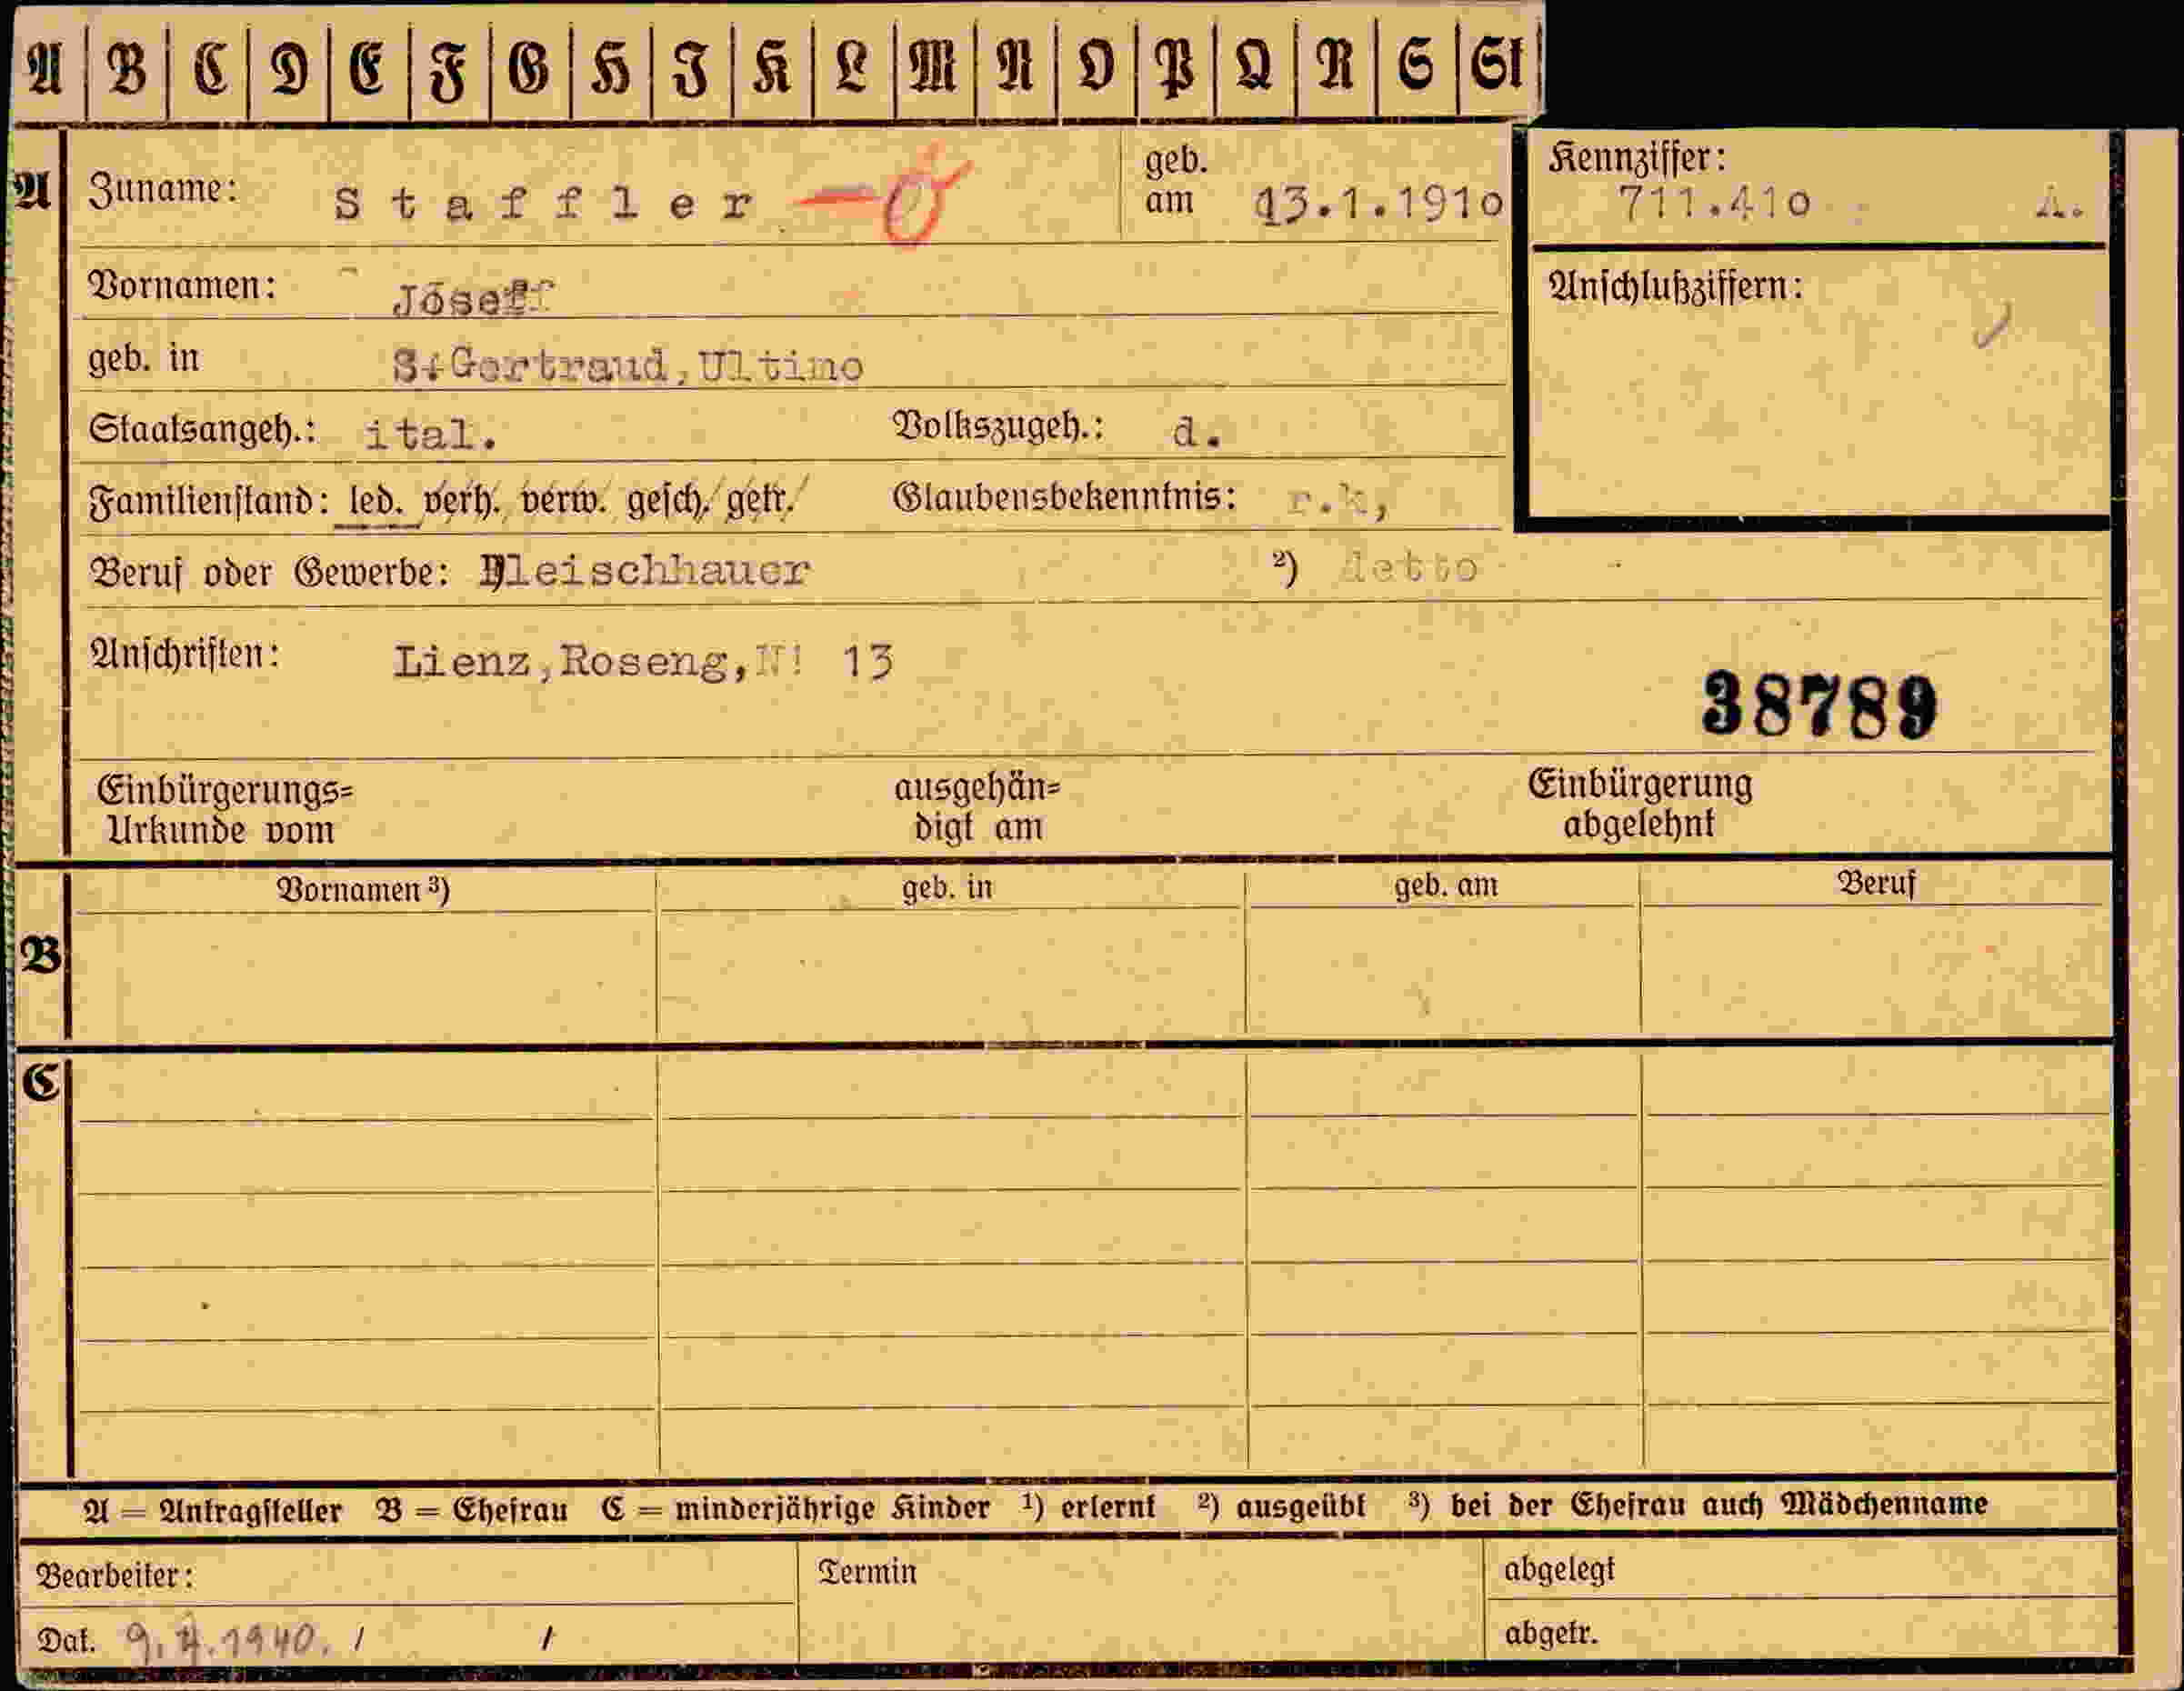 A B C D E F G H I K L M N O P Q R S St
A Zuname: Staffler geb. am 13.1.1910 Kennziffer: 711.410 A.
Vornamen: Josef Anschlußziffern:
geb. in St Gertraud, Ultimo
Staatsangeh.: ital. Volkszugeh.: d.
Familienstand: led. verh. verw. gesch. getr. Glaubensbekenntnis: r.k,
Beruf oder Gewerbe: Fleischhauer ²) detto
Anschriften: Lienz, Roseng, N! 13
38789
Einbürgerungs=
Urkunde vom
ausgehän=
digt am
Einbürgerung
abgelehnt
Vornamen ³) geb. in geb. am Beruf
B
C
A = Antragsteller B = Ehefrau C = minderjährige Kinder ¹) erlernt ²) ausgeübt ³) bei der Ehefrau auch Mädchenname
Bearbeiter: Termin abgelegt
Dat. 9. 4. 1940. / / abgetr.